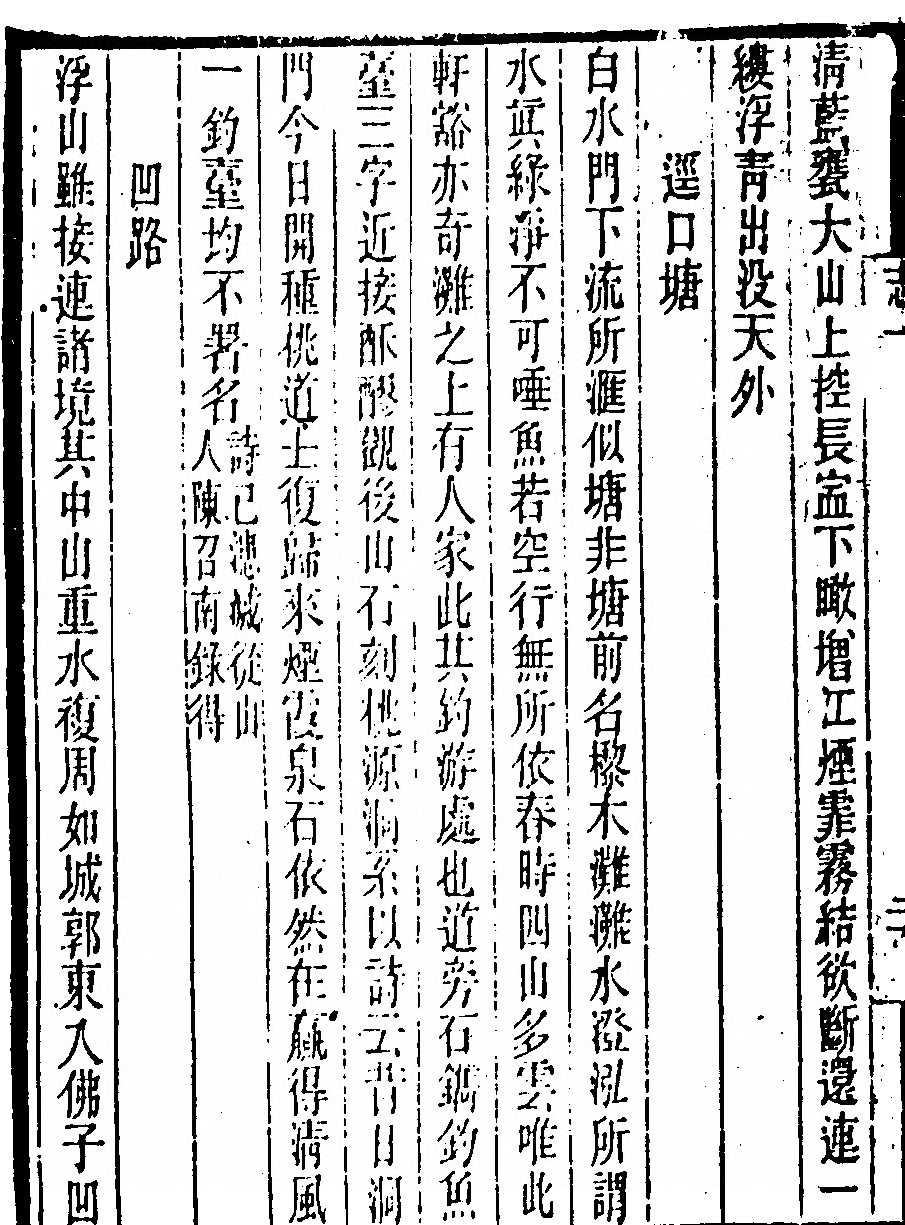 清藍甕大山上控長寍下瞰增江煙霏霧結欲斷還連一
縷浮青出没天外
逕口塘
白水門下流所滙似塘非塘前名檪木灘灘水澄泓所謂
水眞綠淨不可唾魚若空行無所依春時四山多雲唯此
軒豁亦奇灘之上有人家此其釣游處也道旁石鐫釣魚
臺三字近接酥醪觀後山石刻桃源洞系以詩云昔日洞
門今日開種桃道士復歸來煙霞泉石依然在贏得清風
一釣臺均不署名
詩已漶滅從山
人陳召南錄得
凹路
浮山雖接連諸境其中山重水複周如城郭東入佛子凹
志一